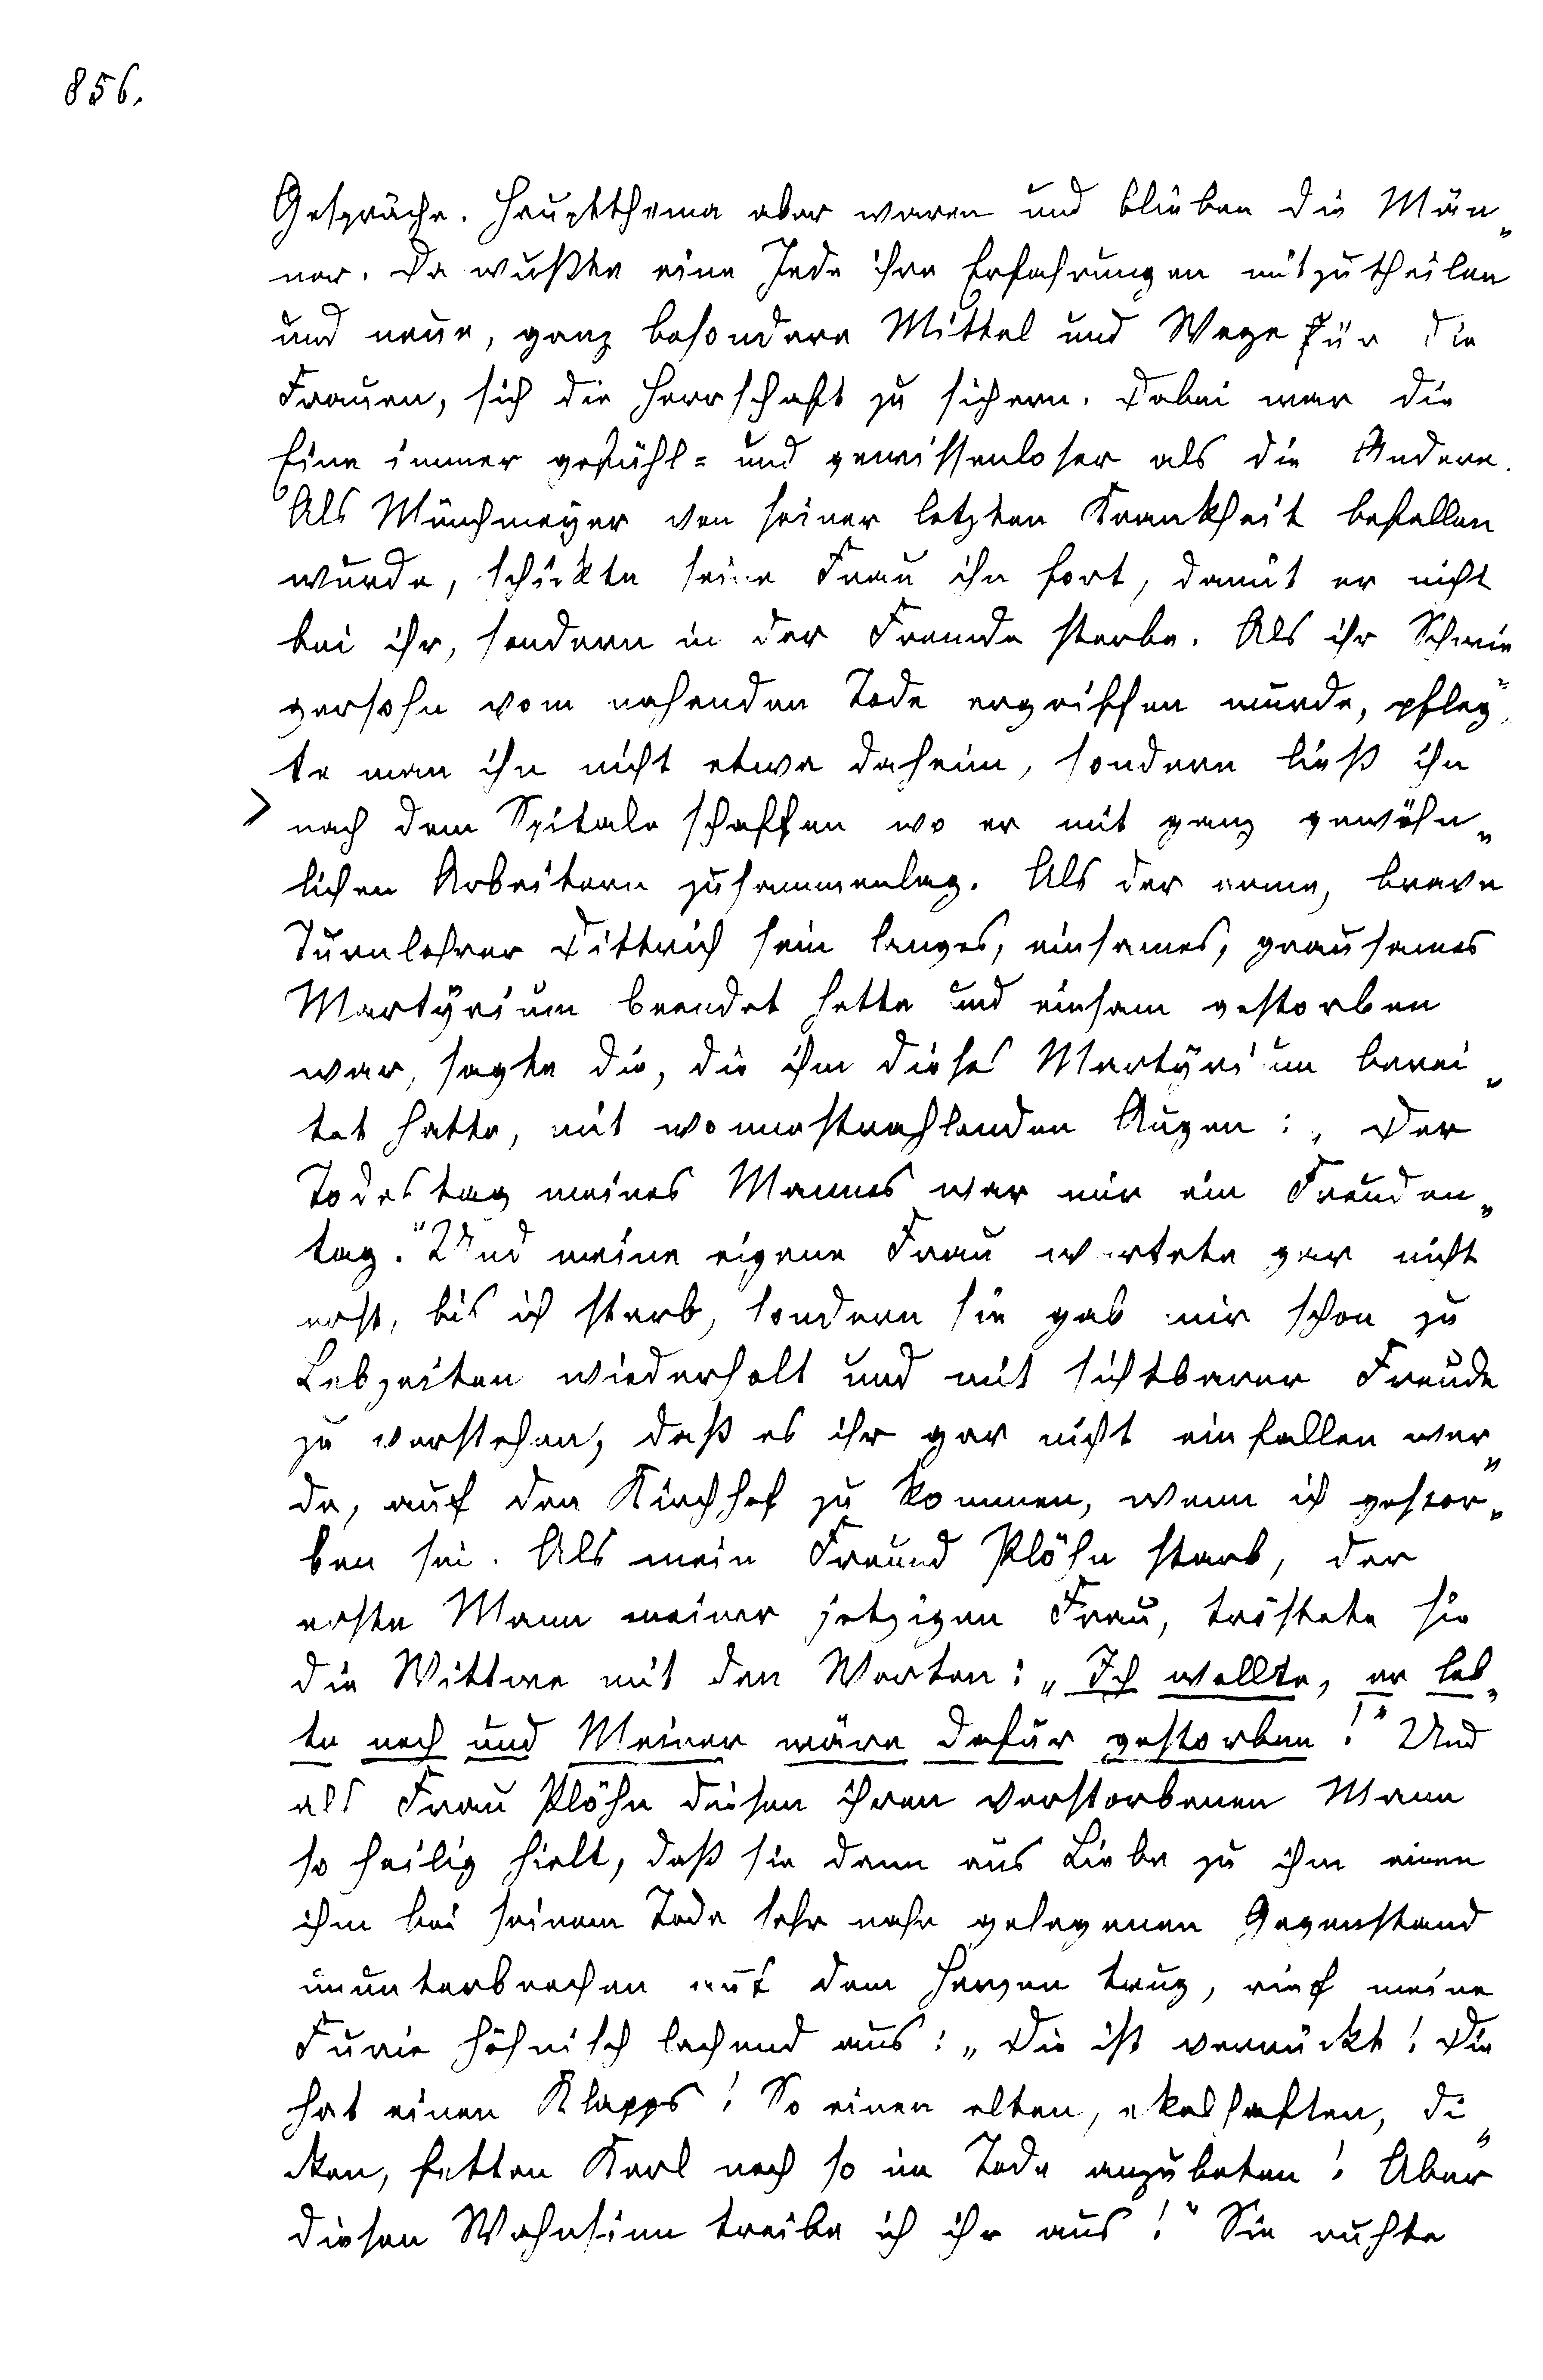 856.
Gespräche. Hauptthema aber waren und blieben die Män„
ner. Da wußte eine Jede ihre Erfahrungen mitzutheilen
und neue, ganz besondere Mittel und Wege für die
Frauen, sich die Herrschaft zu sichern. Dabei war die
Eine immer gefühl= und gewissenloser als die Andere.
Als Münchmeyer von seiner letzten Krankheit befallen
wurde, schickte seine Frau ihn fort, damit er nicht
bei ihr, sondern in der Fremde sterbe. Als ihr Schwie„
gersohn vom nahenden Tode ergriffen wurde, pfleg„
te man ihn nicht etwa daheim, sondern ließ ihn
nach dem Spitale schaffen wo er mit ganz gewöhn„
lichen Arbeitern zusammenlag. Als der arme, brave
Turnlehrer Dittrich sein langes, einsames, grausames
Martyrium beendet hatte und einsam gestorben
war, sagte die, die ihm dieses Martyrium berei„
tet hatte, mit wonnestrahlenden Augen: „Der
Todestag meines Mannes war mir ein Freuden„
tag." Und meine eigene Frau wartete gar nicht
erst, bis ich starb, sondern sie gab mir schon zu
Lebzeiten wiederholt und mit sichtbarer Freude
zu verstehen, daß es ihr gar nicht einfallen wer„
de, auf den Kirchhof zu kommen, wenn ich gestor„
ben sei. Als mein Freund Plöhn starb, der
erste Mann meiner jetzigen Frau, tröstete sie
die Wittwe mit den Worten: „Ich wollte, er leb„
te noch und Meiner wäre dafür gestorben!" Und
als Frau Plöhn diesen ihren verstorbenen Mann
so heilig hielt, daß sie dann aus Liebe zu ihm einen
ihm bei seinem Tode sehr nahe gelegenen Gegenstand
ununterbrochen auf dem Herzen trug, rief meine
Furie höhnisch lachend aus: „Die ist verrückt! Die
hat einen Klapps! So einen alten, ekelhaften, di„
cken, fetten Kerl noch so im Tode anzubeten! Aber
diesen Wahnsinn treibe ich ihr aus!" Sie ruhte